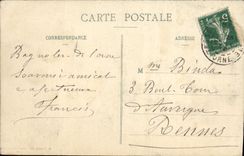 CARTE POSTALE
CORRESPONDANCE
ADRESSE
Bagnoles de l'orne
Souvenir amical
Francis
Mme Binda
3, Boul. Tour
d'Auvergne
Rennes